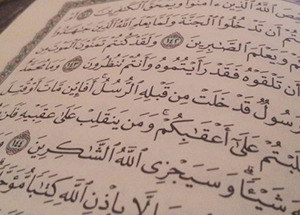 ٱللَّهُ ٱلَّذِينَ ءَامَنُوا۟ وَيَمْحَقَ ٱلْكَٰفِرِينَ
أَن تَدْخُلُوا۟ ٱلْجَنَّةَ وَلَمَّا يَعْلَمِ ٱللَّهُ ٱلَّذِينَ جَٰهَدُوا۟
وَيَعْلَمَ ٱلصَّٰبِرِينَ ١٤٢ وَلَقَدْ كُنتُمْ تَمَنَّوْنَ ٱلْمَوْتَ
أَن تَلْقَوْهُ فَقَدْ رَأَيْتُمُوهُ وَأَنتُمْ تَنظُرُونَ ١٤٣ وَمَا مُحَمَّدٌ
رَسُولٌ قَدْ خَلَتْ مِن قَبْلِهِ ٱلرُّسُلُ أَفَإِي۟ن مَّاتَ أَوْ قُتِلَ
عَلَىٰٓ أَعْقَٰبِكُمْ وَمَن يَنقَلِبْ عَلَىٰ عَقِبَيْهِ فَلَن
شَيْـًٔا وَسَيَجْزِى ٱللَّهُ ٱلشَّٰكِرِينَ ١٤٤
إِلَّا بِإِذْنِ ٱللَّهِ كِتَٰبًا مُّؤَجَّلًا